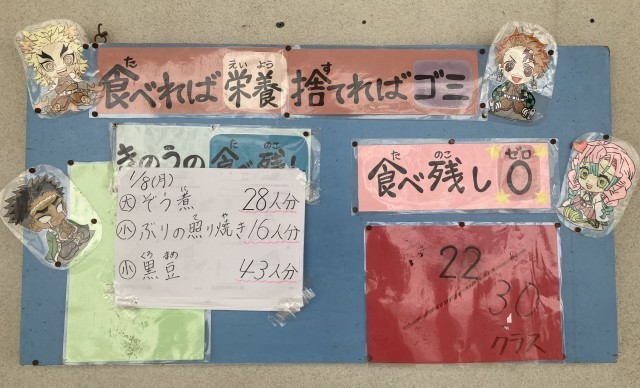 食べれば栄養捨てればゴミ
きのうの食べ残し
1/8(月)
大 ぞう煮 28人分
小 ぶりの照り焼き 16人分
小 黒豆 43人分
食べ残し0
22
30
クラス